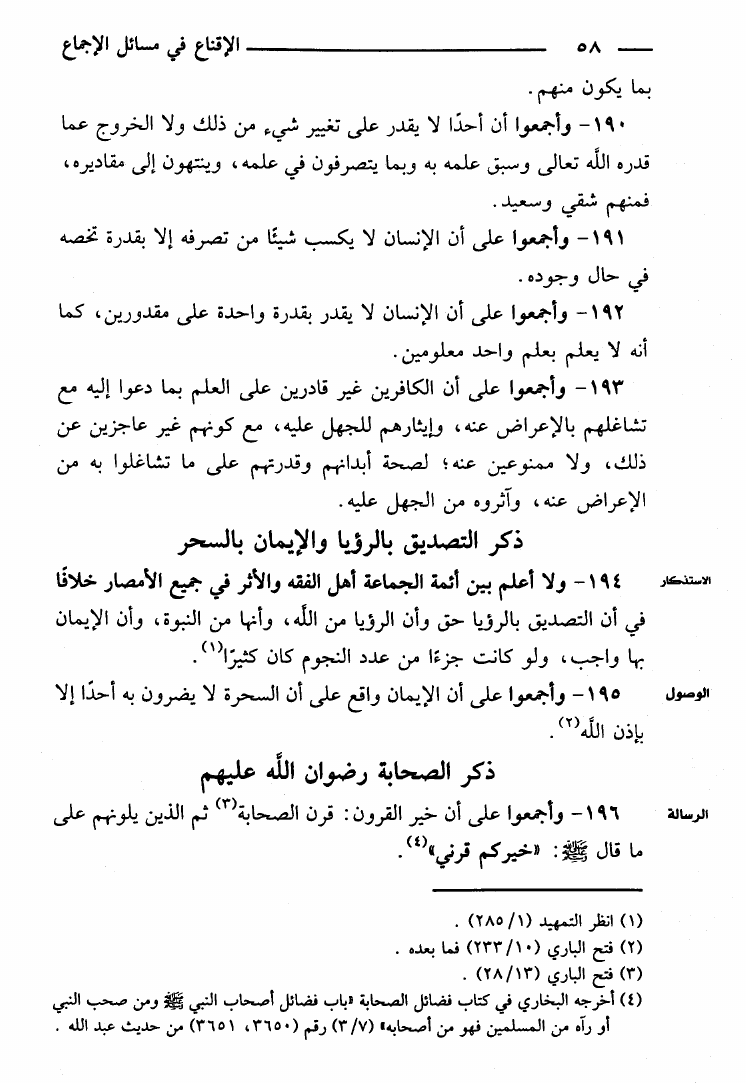 ٥٨ الإقناع في مسائل الإجماع
بما يكون منهم.
١٩٠- وأجمعوا أن أحدًا لا يقدر على تغيير شيء من ذلك ولا الخروج عما
قدره اللَّه تعالى وسبق علمه به وبما يتصرفون في علمه، وينتهون إلى مقاديره،
فمنهم شقي وسعيد.
١٩١- وأجمعوا على أن الإنسان لا يكسب شيئًا من تصرفه إلا بقدرة تخصه
في حال وجوده.
١٩٢- وأجمعوا على أن الإنسان لا يقدر بقدرة واحدة على مقدورين، كما
أنه لا يعلم بعلم واحد معلومين.
١٩٣- وأجمعوا على أن الكافرين غير قادرين على العلم بما دعوا إليه مع
تشاغلهم بالإعراض عنه، وإيثارهم للجهل عليه، مع كونهم غير عاجزين عن
ذلك، ولا ممنوعين عنه؛ لصحة أبدانهم وقدرتهم على ما تشاغلوا به من
الإعراض عنه، وآثروه من الجهل عليه.
ذكر التصديق بالرؤيا والإيمان بالسحر
الاستذكار ١٩٤- ولا أعلم بين أئمة الجماعة أهل الفقه والأثر في جميع الأمصار خلافًا
في أن التصديق بالرؤيا حق وأن الرؤيا من اللَّه، وأنها من النبوة، وأن الإيمان
بها واجب، ولو كانت جزءًا من عدد النجوم كان كثيرًا(١).
الوصول ١٩٥- وأجمعوا على أن الإيمان واقع على أن السحرة لا يضرون به أحدًا إلا
بإذن اللَّه(٢).
ذكر الصحابة رضوان اللَّه عليهم
الرسالة ١٩٦- وأجمعوا على أن خير القرون: قرن الصحابة(٣) ثم الذين يلونهم على
ما قال ﷺ: «خيركم قرني»(٤).
(١) انظر التمهيد (١/ ٢٨٥) .
(٢) فتح الباري (١٠/ ٢٣٣) فما بعده .
(٣) فتح الباري (١٣/ ٢٨) .
(٤) أخرجه البخاري في كتاب فضائل الصحابة «باب فضائل أصحاب النبي ﷺ ومن صحب النبي
أو رآه من المسلمين فهو من أصحابه» (٧/ ٣) رقم (٣٦٥٠، ٣٦٥١) من حديث عبد الله .